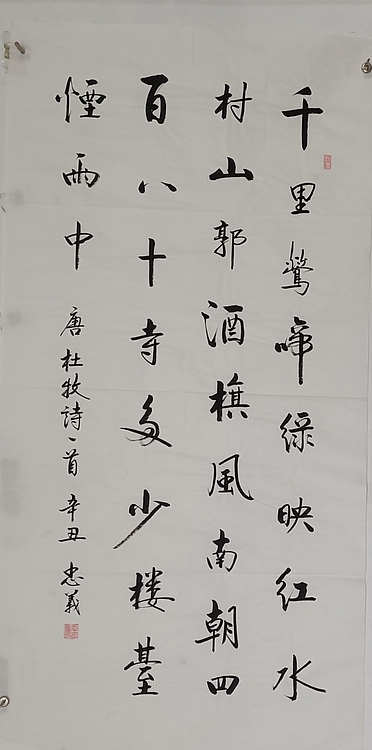 千里鶯啼绿映红水
村山郭酒旗風南朝四
百八十寺多少楼臺
煙雨中 唐杜牧詩一首 辛丑 忠義